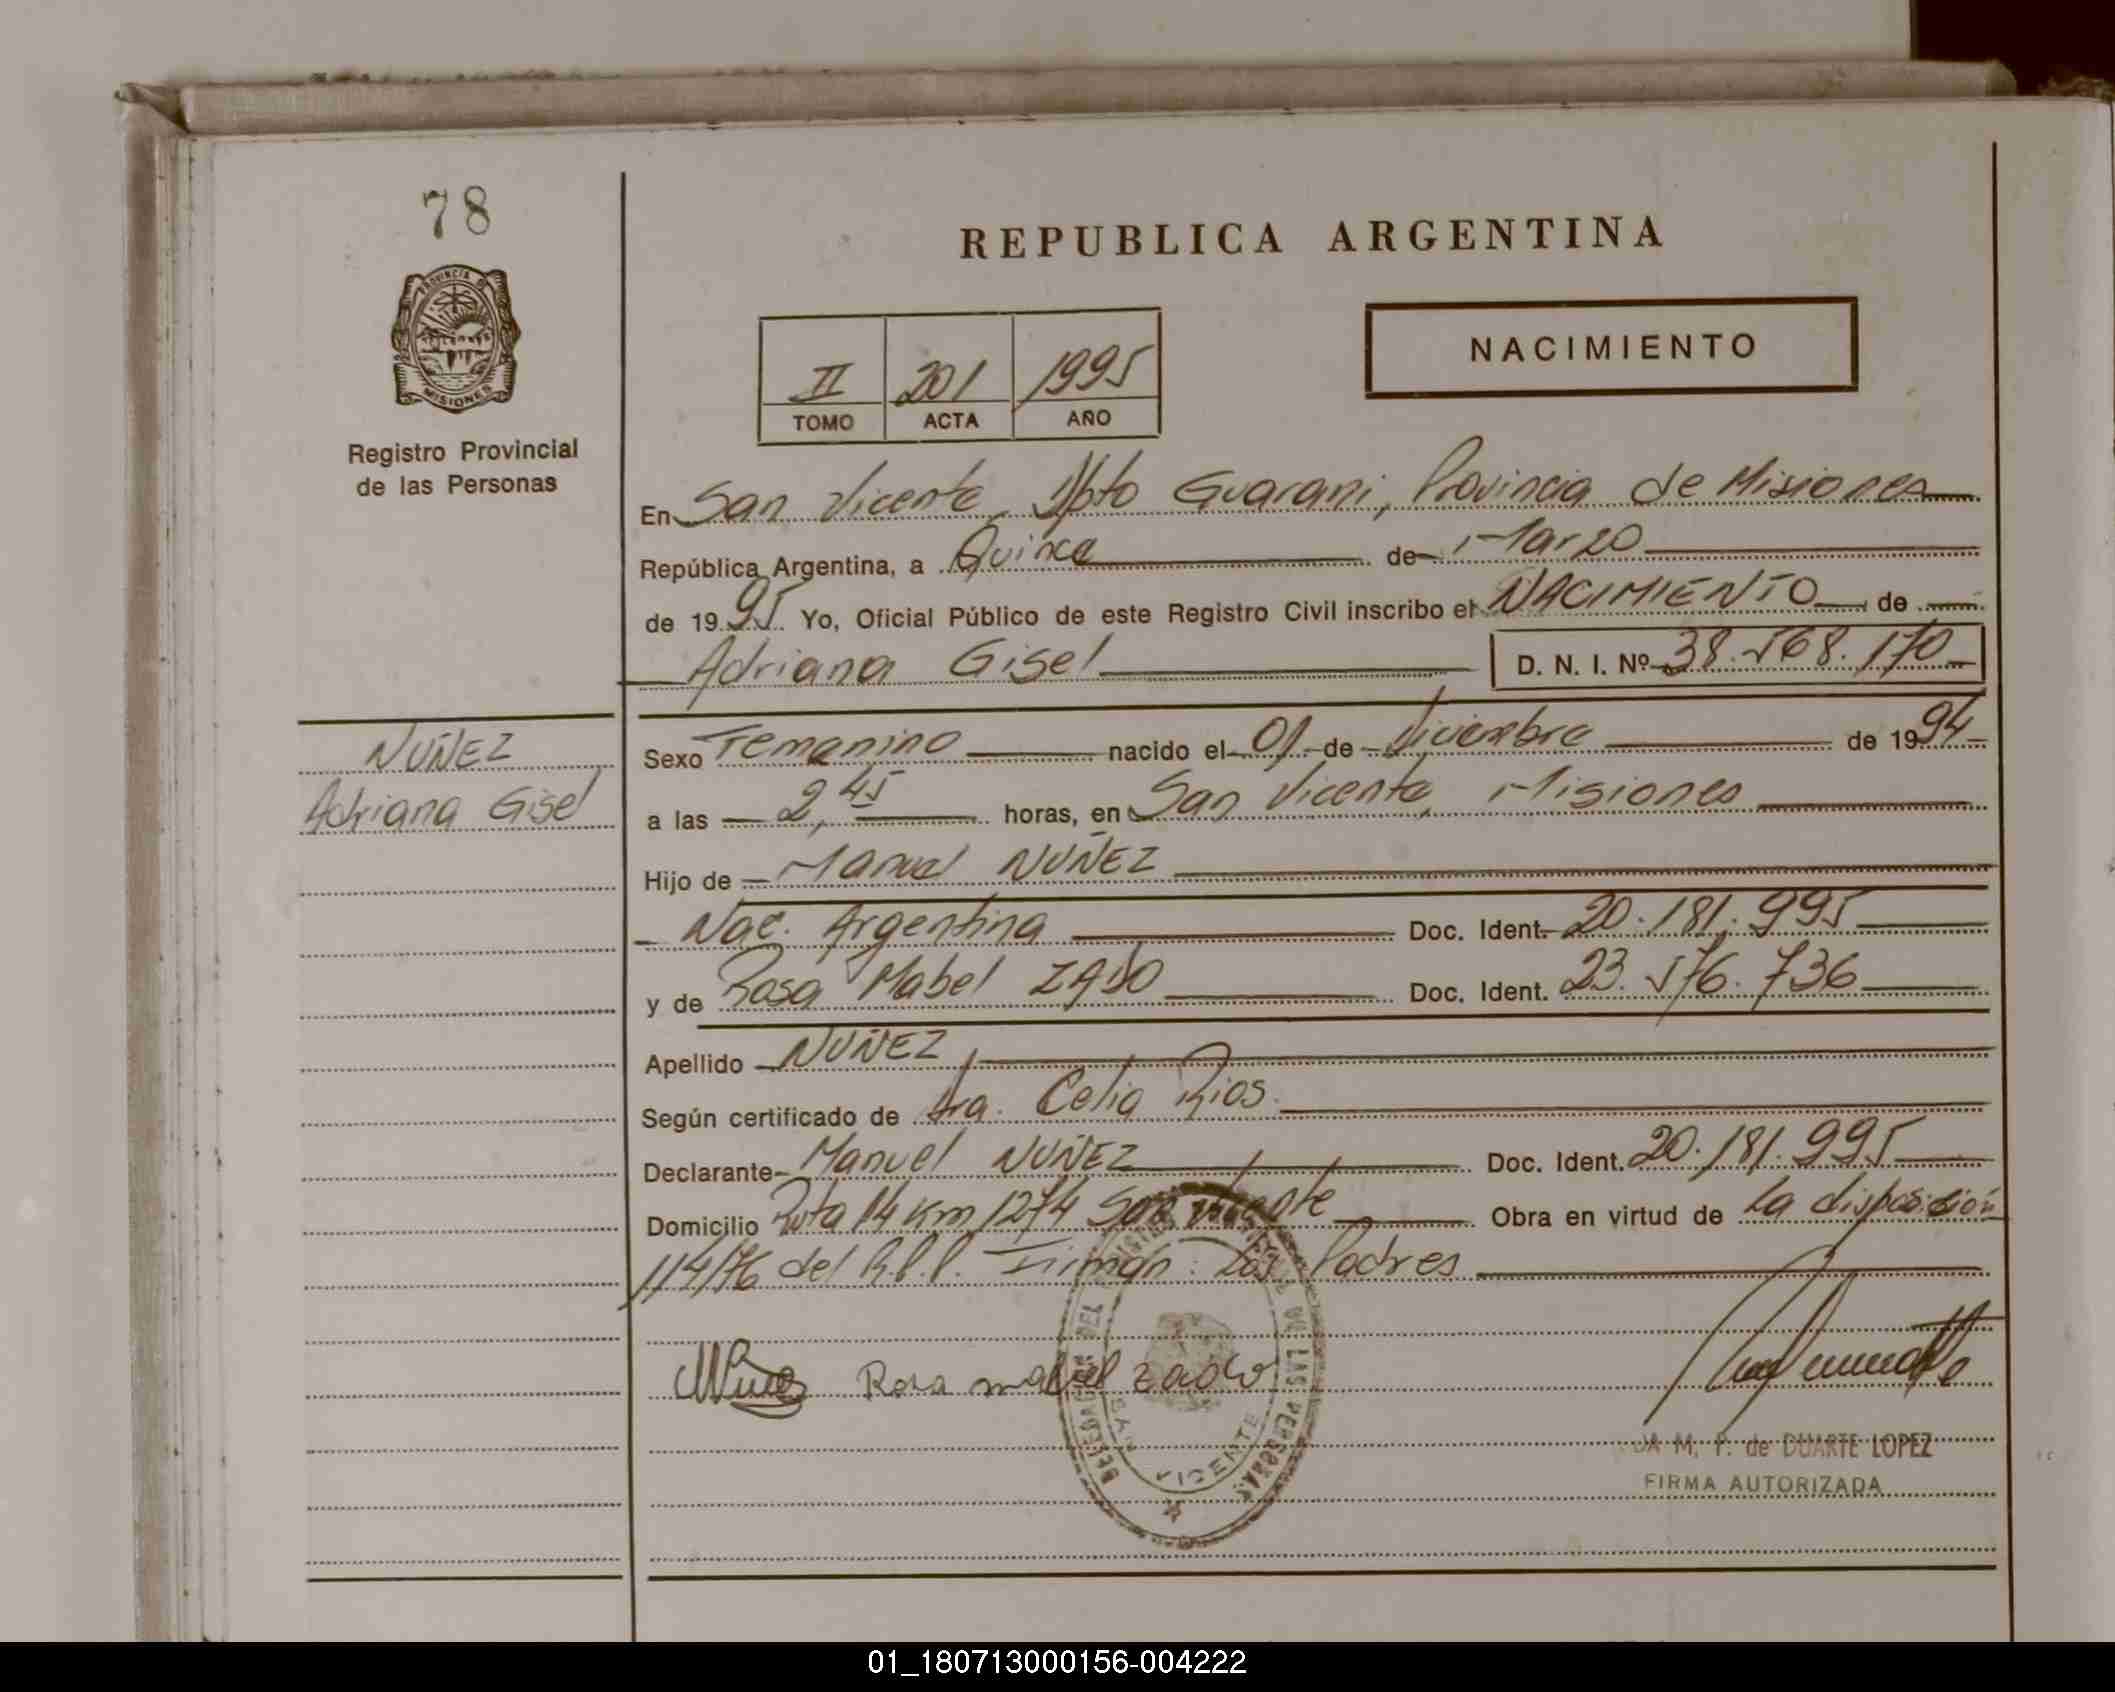 78
REPUBLICA ARGENTINA
PROVINCIA DE
MISIONES
Registro Provincial
de las Personas
II 201 1995
TOMO ACTA AÑO
NACIMIENTO
En San Vicente, Dpto Guarani, Provincia de Misiones
República Argentina, a Quince de Marzo
de 1995 Yo, Oficial Público de este Registro Civil inscribo el NACIMIENTO de
Adriana Gisel D. N. I. Nº 38.568.170
NUÑEZ
Adriana Gisel
Sexo Femenino nacido el 01 de Diciembre de 1994
a las 2,45 horas, en San Vicente, Misiones
Hijo de Manuel NUÑEZ
Nac. Argentina Doc. Ident. 20.181.995
y de Rosa Mabel ZADO Doc. Ident. 23.576.736
Apellido NUÑEZ
Según certificado de Dra. Celia Rios.
Declarante Manuel NUÑEZ Doc. Ident. 20.181.995
Domicilio Ruta 14 Km 1274 San Vicente Obra en virtud de la disposición
114/76 del R.P.P. Firman: Los Padres
Rosa mabel zado
DELEGACION DEL REGISTRO DE LAS PERSONAS
SAN VICENTE
M. P. de DUARTE LOPEZ
FIRMA AUTORIZADA
01_180713000156-004222